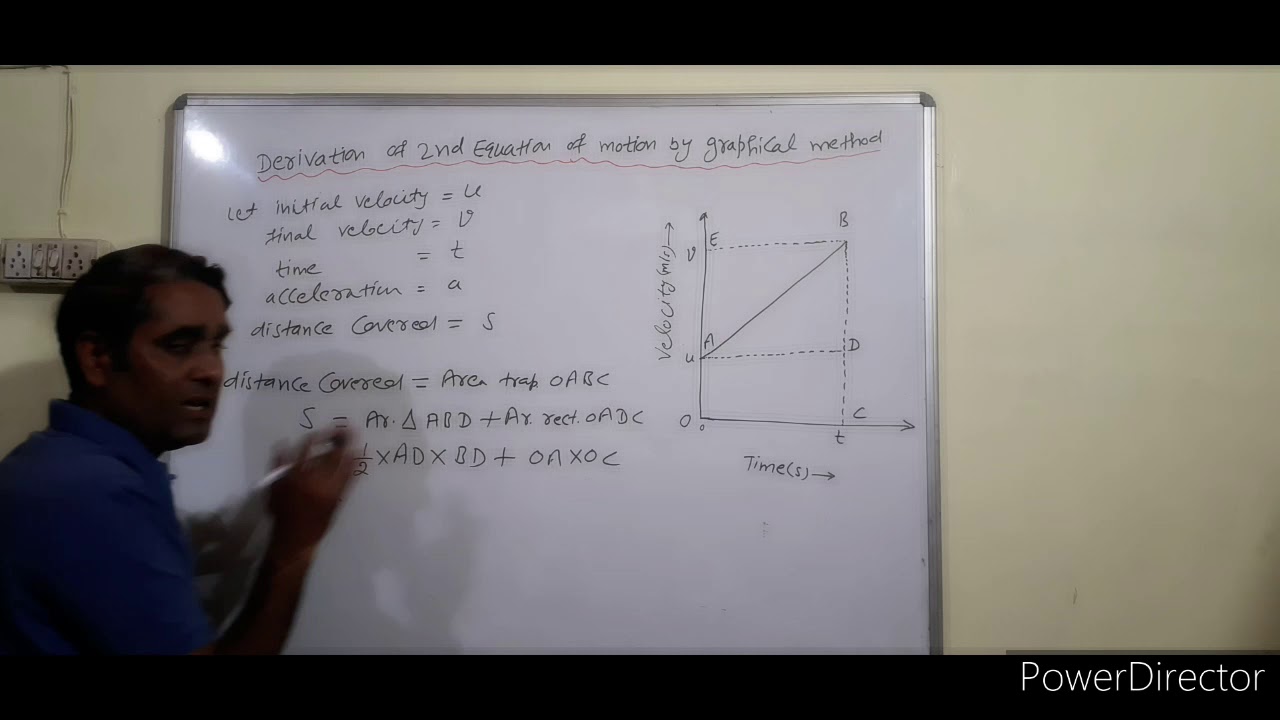 Derivation of 2nd Equation of motion by graphical method
Let initial velocity = u
final velocity = v
time = t
acceleration = a
distance Covered = S
distance Covered = Area trap OABC
S = Ar. Δ ABD + Ar. rect. OADC
1/2 × AD × BD + OA × OC
Velocity(m/s) →
B
E
v
A
u
D
O
C
t
Time(s) →
PowerDirector